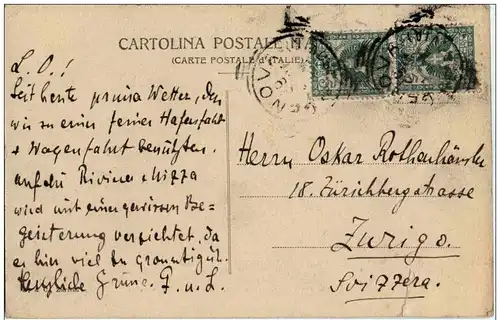 CARTOLINA POSTALE
(CARTE POSTALE D'ITALIE)
L. O.!
Seit heute prima Wetter, den
wir zu einer feinen Hafenfahrt
+ Wagenfahrt benützten.
auf die Riviera Nizza
wird mit einer gewissen Be-
geisterung verzichtet, da
es hier viel
Herzliche Grüsse. F. u. L.
Herrn Oskar Rothenhäusler
18. Zürichbergstrasse
Zurigo.
Svizzera.